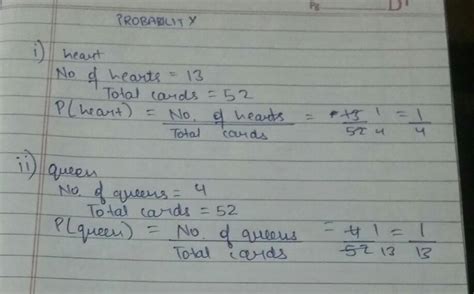 PROBABILITY
i) heart
No of hearts = 13
Total cards = 52
P(heart) = No. of hearts / Total cards = 13 1 / 52 4 = 1/4
ii) queen
No. of queens = 4
Total cards = 52
P(queen) = No. of queens / Total cards = 4 1 / 52 13 = 1/13